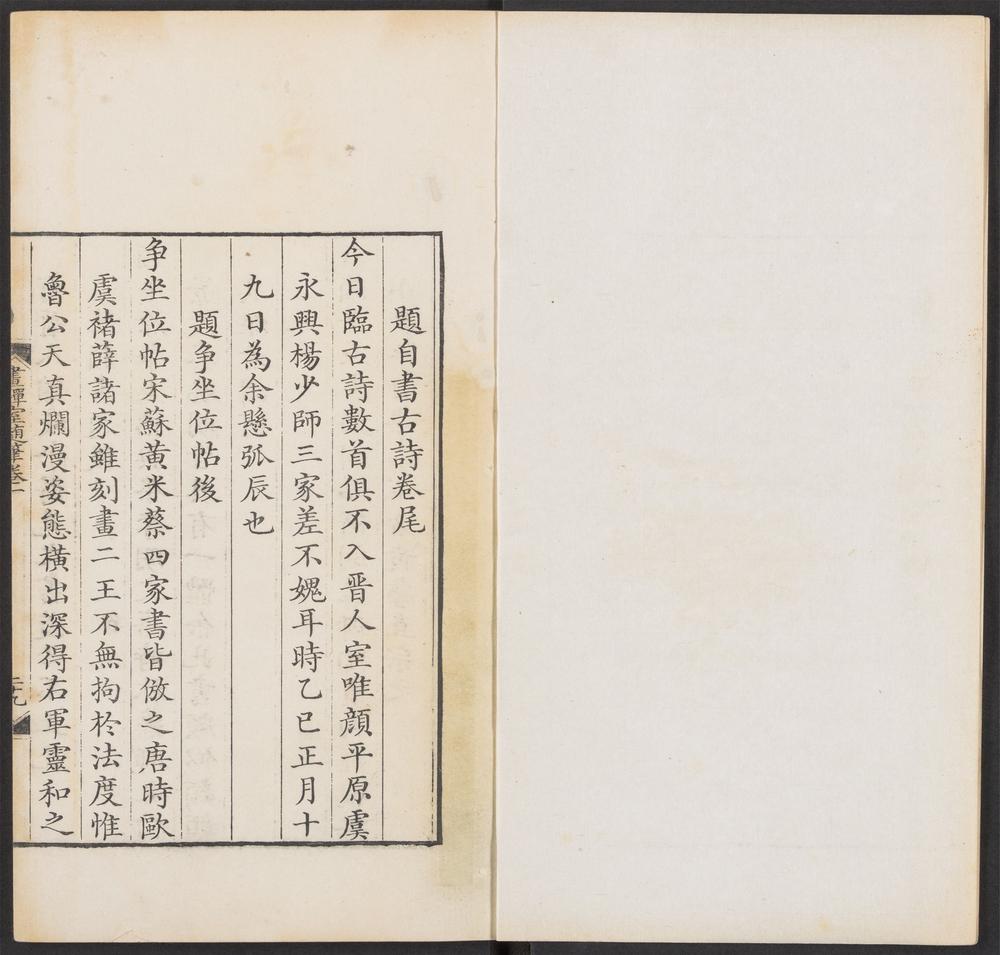 題自書古詩卷尾
今日臨古詩數首俱不入晉人室唯顔平原虞
永興楊少師三家差不媿耳時乙巳正月十
九日為余懸弧辰也
題争坐位帖後
争坐位帖宋蘇黃米蔡四家書皆倣之唐時歐
虞褚薛諸家雖刻畫二王不無拘於法度惟
魯公天真爛漫姿態橫出深得右軍靈和之
畫禪室隨筆卷一
二十九